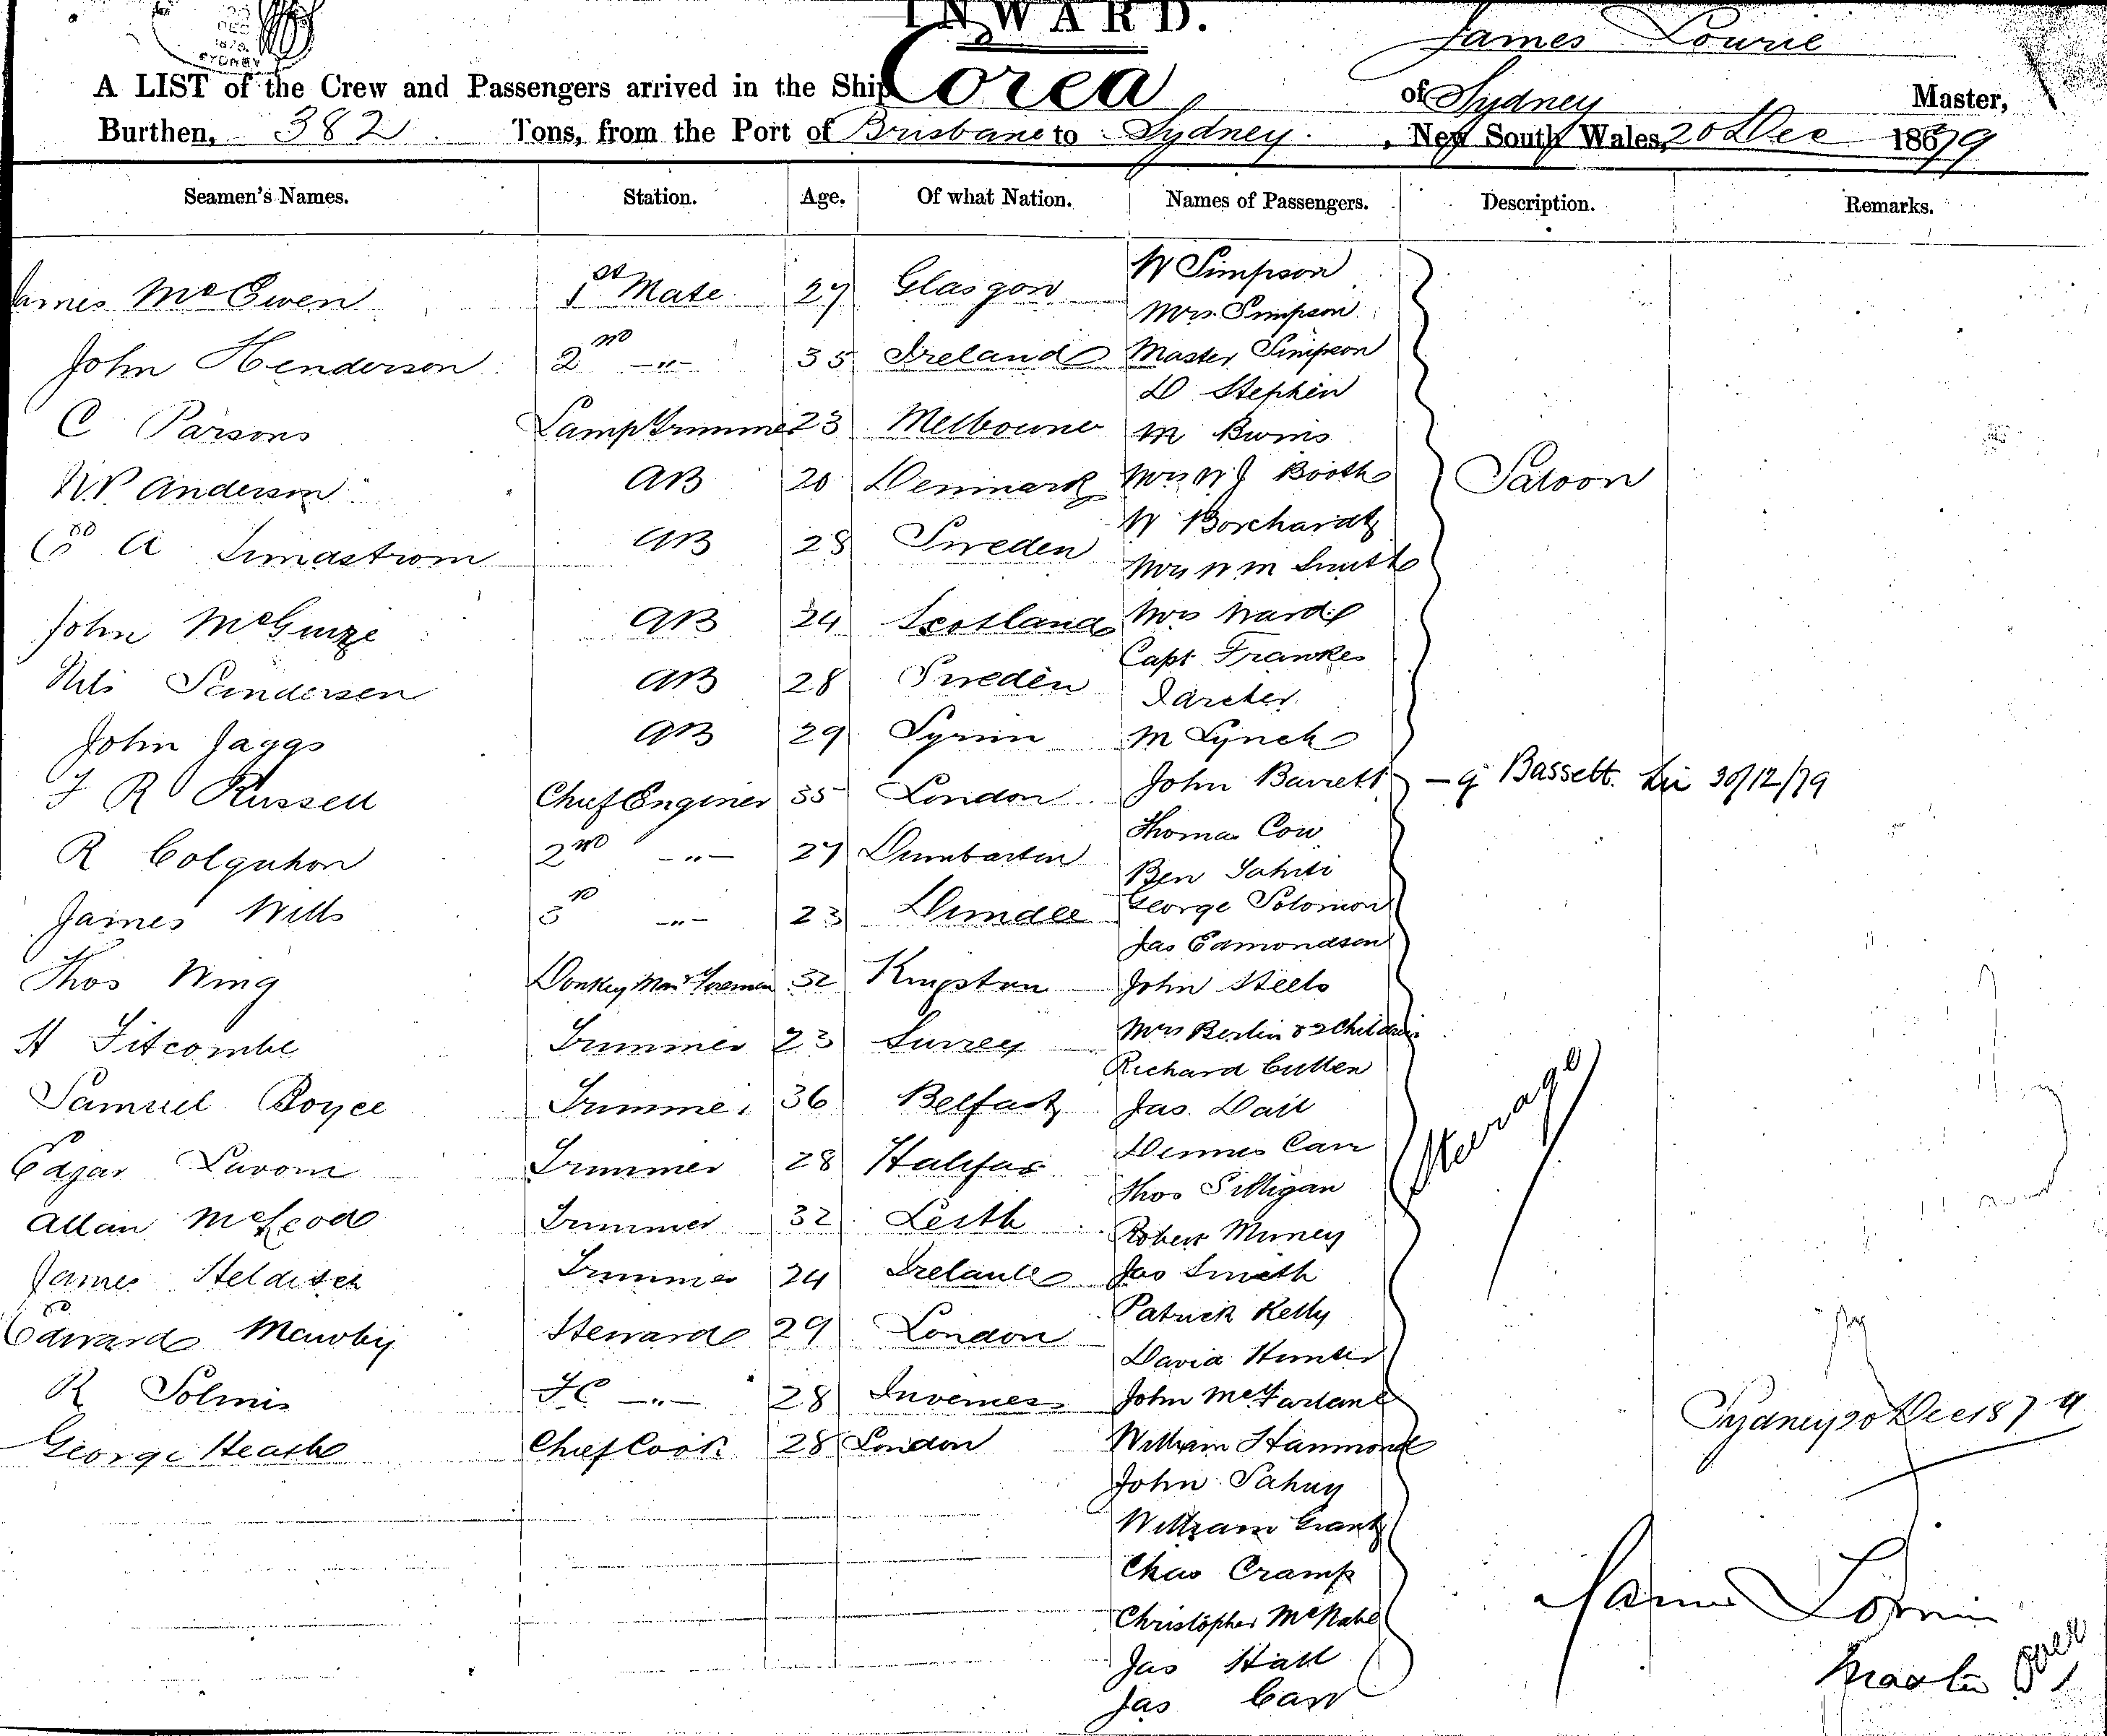 SYDNEY
INWARD.
James Lowrie
A LIST of the Crew and Passengers arrived in the Ship Corea of Sydney Master,
Burthen, 382 Tons, from the Port of Brisbane to Sydney. , New South Wales, 20 Dec 1879
Seamen's Names. Station. Age. Of what Nation. Names of Passengers. Description. Remarks.
James McEwen 1st Mate 27 Glasgow W Simpson
Mrs. Simpson
John Henderson 2nd -"- 35 Ireland Master Simpson
D Stephen
C Parsons Lamp Trimmer 23 Melbourne M Burns
N P Anderson AB 20 Denmark Mrs W J Booth Saloon
W Borchardt
C A Lindastrom AB 28 Sweden Mrs W M Smith
John McGuize AB 24 Scotland Mrs Ward
Capt Franke
Nils Sandersen AB 28 Sweden Darcher
John Jaggs AB 29 M Lynch
F R Russell Chief Enginer 35 London John Barrett - G Bassett. 30/12/79
Thomas Cow
R Colquhon 2nd -"- 27 Dumbarton Ben Tahiti
James Wills 3rd -"- 23 Dundee George Solomon
Jas Edmondson
Thos Wing Donkey Man & Foreman 32 Kingston John Steele
H Titcombe Trimmer 23 Surrey Mrs Berlin & 2 Children
Richard Cullen
Samuel Boyce Trimmer 36 Belfast Jas. Dail
Edgar Trimmer 28 Halifax Dennis Carr Steerage
Thos Gilligan
Allan McLeod Trimmer 32 Leith Robert
James Helditch Trimmer 24 Ireland Jas Smith
Patrick Kelly
Edward Mawby Steward 29 London David Hunter
R Solmis FC -"- 28 Invernes John McFarlane
George Heath Chief Cook 28 London William Hammond
Sydney 20 Dec 1879
John
William Grant
Chas Cramp
Christopher McNabe
James Lowrie
Jas Hall
Master
over
Jas Carr